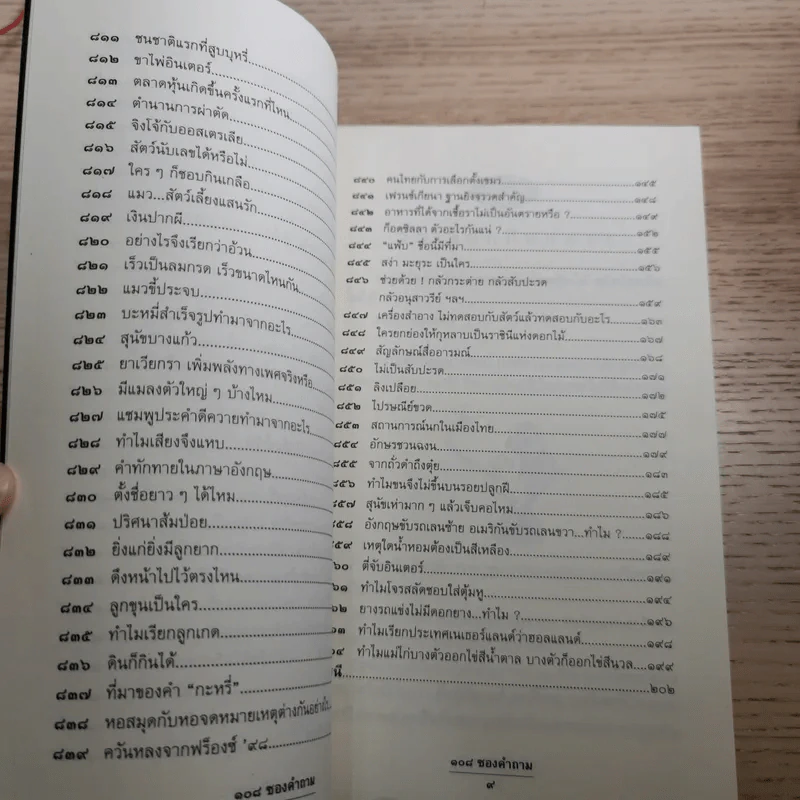 ๘๑๑ ชนชาติแรกที่สูบบุหรี่
๘๑๒ ขาไพ่อินเตอร์
๘๑๓ ตลาดหุ้นเกิดขึ้นครั้งแรกที่ไหน
๘๑๔ ตำนานการผ่าตัด
๘๑๕ จิงโจ้กับออสเตรเลีย
๘๑๖ สัตว์นับเลขได้หรือไม่
๘๑๗ ใคร ๆ ก็ชอบกินเกลือ
๘๑๘ แมว...สัตว์เลี้ยงแสนรัก
๘๑๙ เงินปากผี
๘๒๐ อย่างไรจึงเรียกว่าอ้วน
๘๒๑ เร็วเป็นลมกรด เร็วขนาดไหนกัน
๘๒๒ แมวขี้ประจบ
๘๒๓ บะหมี่สำเร็จรูปทำมาจากอะไร
๘๒๔ สุนัขบางแก้ว
๘๒๕ ยาเวียกรา เพิ่มพลังทางเพศจริงหรือ
๘๒๖ มีแมลงตัวใหญ่ ๆ บ้างไหม
๘๒๗ แชมพูประคำดีควายทำมาจากอะไร
๘๒๘ ทำไมเสียงจึงแหบ
๘๒๙ คำทักทายในภาษาอังกฤษ
๘๓๐ ตั้งชื่อยาว ๆ ได้ไหม
๘๓๑ ปริศนาส้มป่อย
๘๓๒ ยิ่งแก่ยิ่งมีลูกยาก
๘๓๓ ดึงหน้าไปไว้ตรงไหน
๘๓๔ ลูกขุนเป็นใคร
๘๓๕ ทำไมเรียกลูกเกด
๘๓๖ ดินก็กินได้
๘๓๗ ที่มาของคำ “กะหรี่”
๘๓๘ หอสมุดกับหอจดหมายเหตุต่างกันอย่างไร
๘๓๙ ควันหลงจากฟร็องซ์ ’๙๘
๑๐๘ ซองคำถาม
๘๔๐ คนไทยกับการเลือกตั้งเขมร...๑๔๕
๘๔๑ เฟรนช์เกียนา ฐานยิงจรวดสำคัญ...๑๔๘
๘๔๒ อาหารที่ได้จากเชื้อราไม่เป็นอันตรายหรือ ?...๑๔๙
๘๔๓ ก็อดซิลลา ตัวอะไรกันแน่ ?...๑๕๒
๘๔๔ “แฟ้บ” ชื่อนี้มีที่มา...๑๕๕
๘๔๕ สง่า มะยุระ เป็นใคร...๑๕๖
๘๔๖ ช่วยด้วย ! กลัวกระต่าย กลัวสับปะรด
กลัวอนุสาวรีย์ ฯลฯ...๑๕๙
๘๔๗ เครื่องสำอาง ไม่ทดสอบกับสัตว์แล้วทดสอบกับอะไร...๑๖๓
๘๔๘ ใครยกย่องให้กุหลาบเป็นราชินีแห่งดอกไม้
๘๔๙ สัญลักษณ์สื่ออารมณ์...๑๖๘
๘๕๐ ไม่เป็นสับปะรด...๑๗๑
๘๕๑ ลิงเปลือย...๑๗๒
๘๕๒ ไปรษณีย์ขวด...๑๗๕
๘๕๓ สถานการณ์นกในเมืองไทย...๑๗๗
๘๕๔ อักษรชวนฉงน...๑๗๙
๘๕๕ จากถั่วดำถึงตุ๋ย...๑๘๓
๘๕๖ ทำไมขนจึงไม่ขึ้นบนรอยปลูกฝี...๑๘๕
๘๕๗ สุนัขเห่ามาก ๆ แล้วเจ็บคอไหม...๑๘๖
๘๕๘ อังกฤษขับรถเลนซ้าย อเมริกันขับรถเลนขวา...ทำไม ?...๑๘๘
๘๕๙ เหตุใดน้ำหอมต้องเป็นสีเหลือง...๑๘๙
๖๐ ตี่จับอินเตอร์...๑๙๑
๖๑ ทำไมโจรสลัดชอบใส่ตุ้มหู...๑๙๔
๖๒ ยางรถแข่งไม่มีดอกยาง...ทำไม ?...๑๙๖
๖๓ ทำไมเรียกประเทศเนเธอร์แลนด์ว่าฮอลแลนด์...๑๙๘
๖๔ ทำไมแม่ไก่บางตัวออกไข่สีน้ำตาล บางตัวก็ออกไข่สีนวล...๑๙๙
นี...๒๐๒
๑๐๘ ซองคำถาม
๙